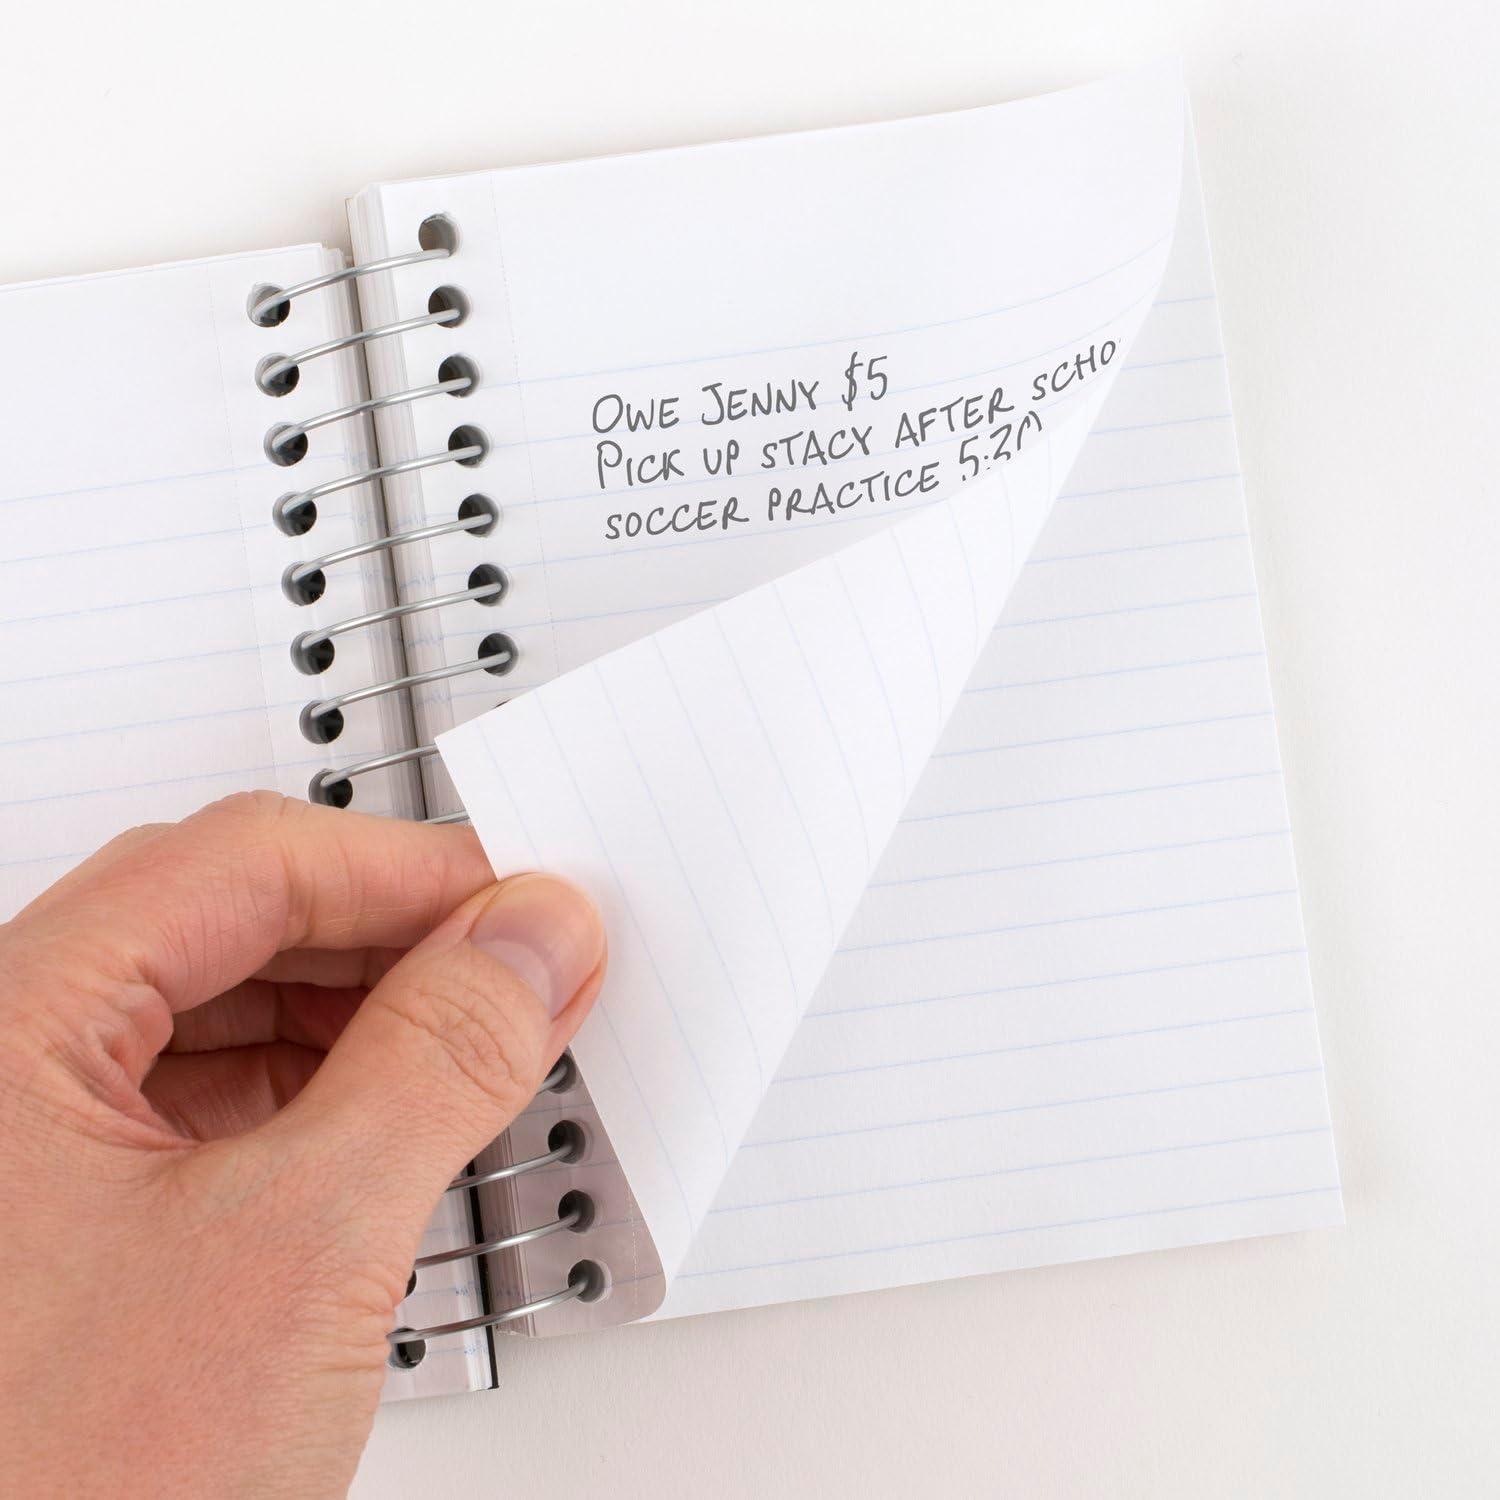 OWE JENNY $5
PICK UP STACY AFTER
SOCCER PRACTICE